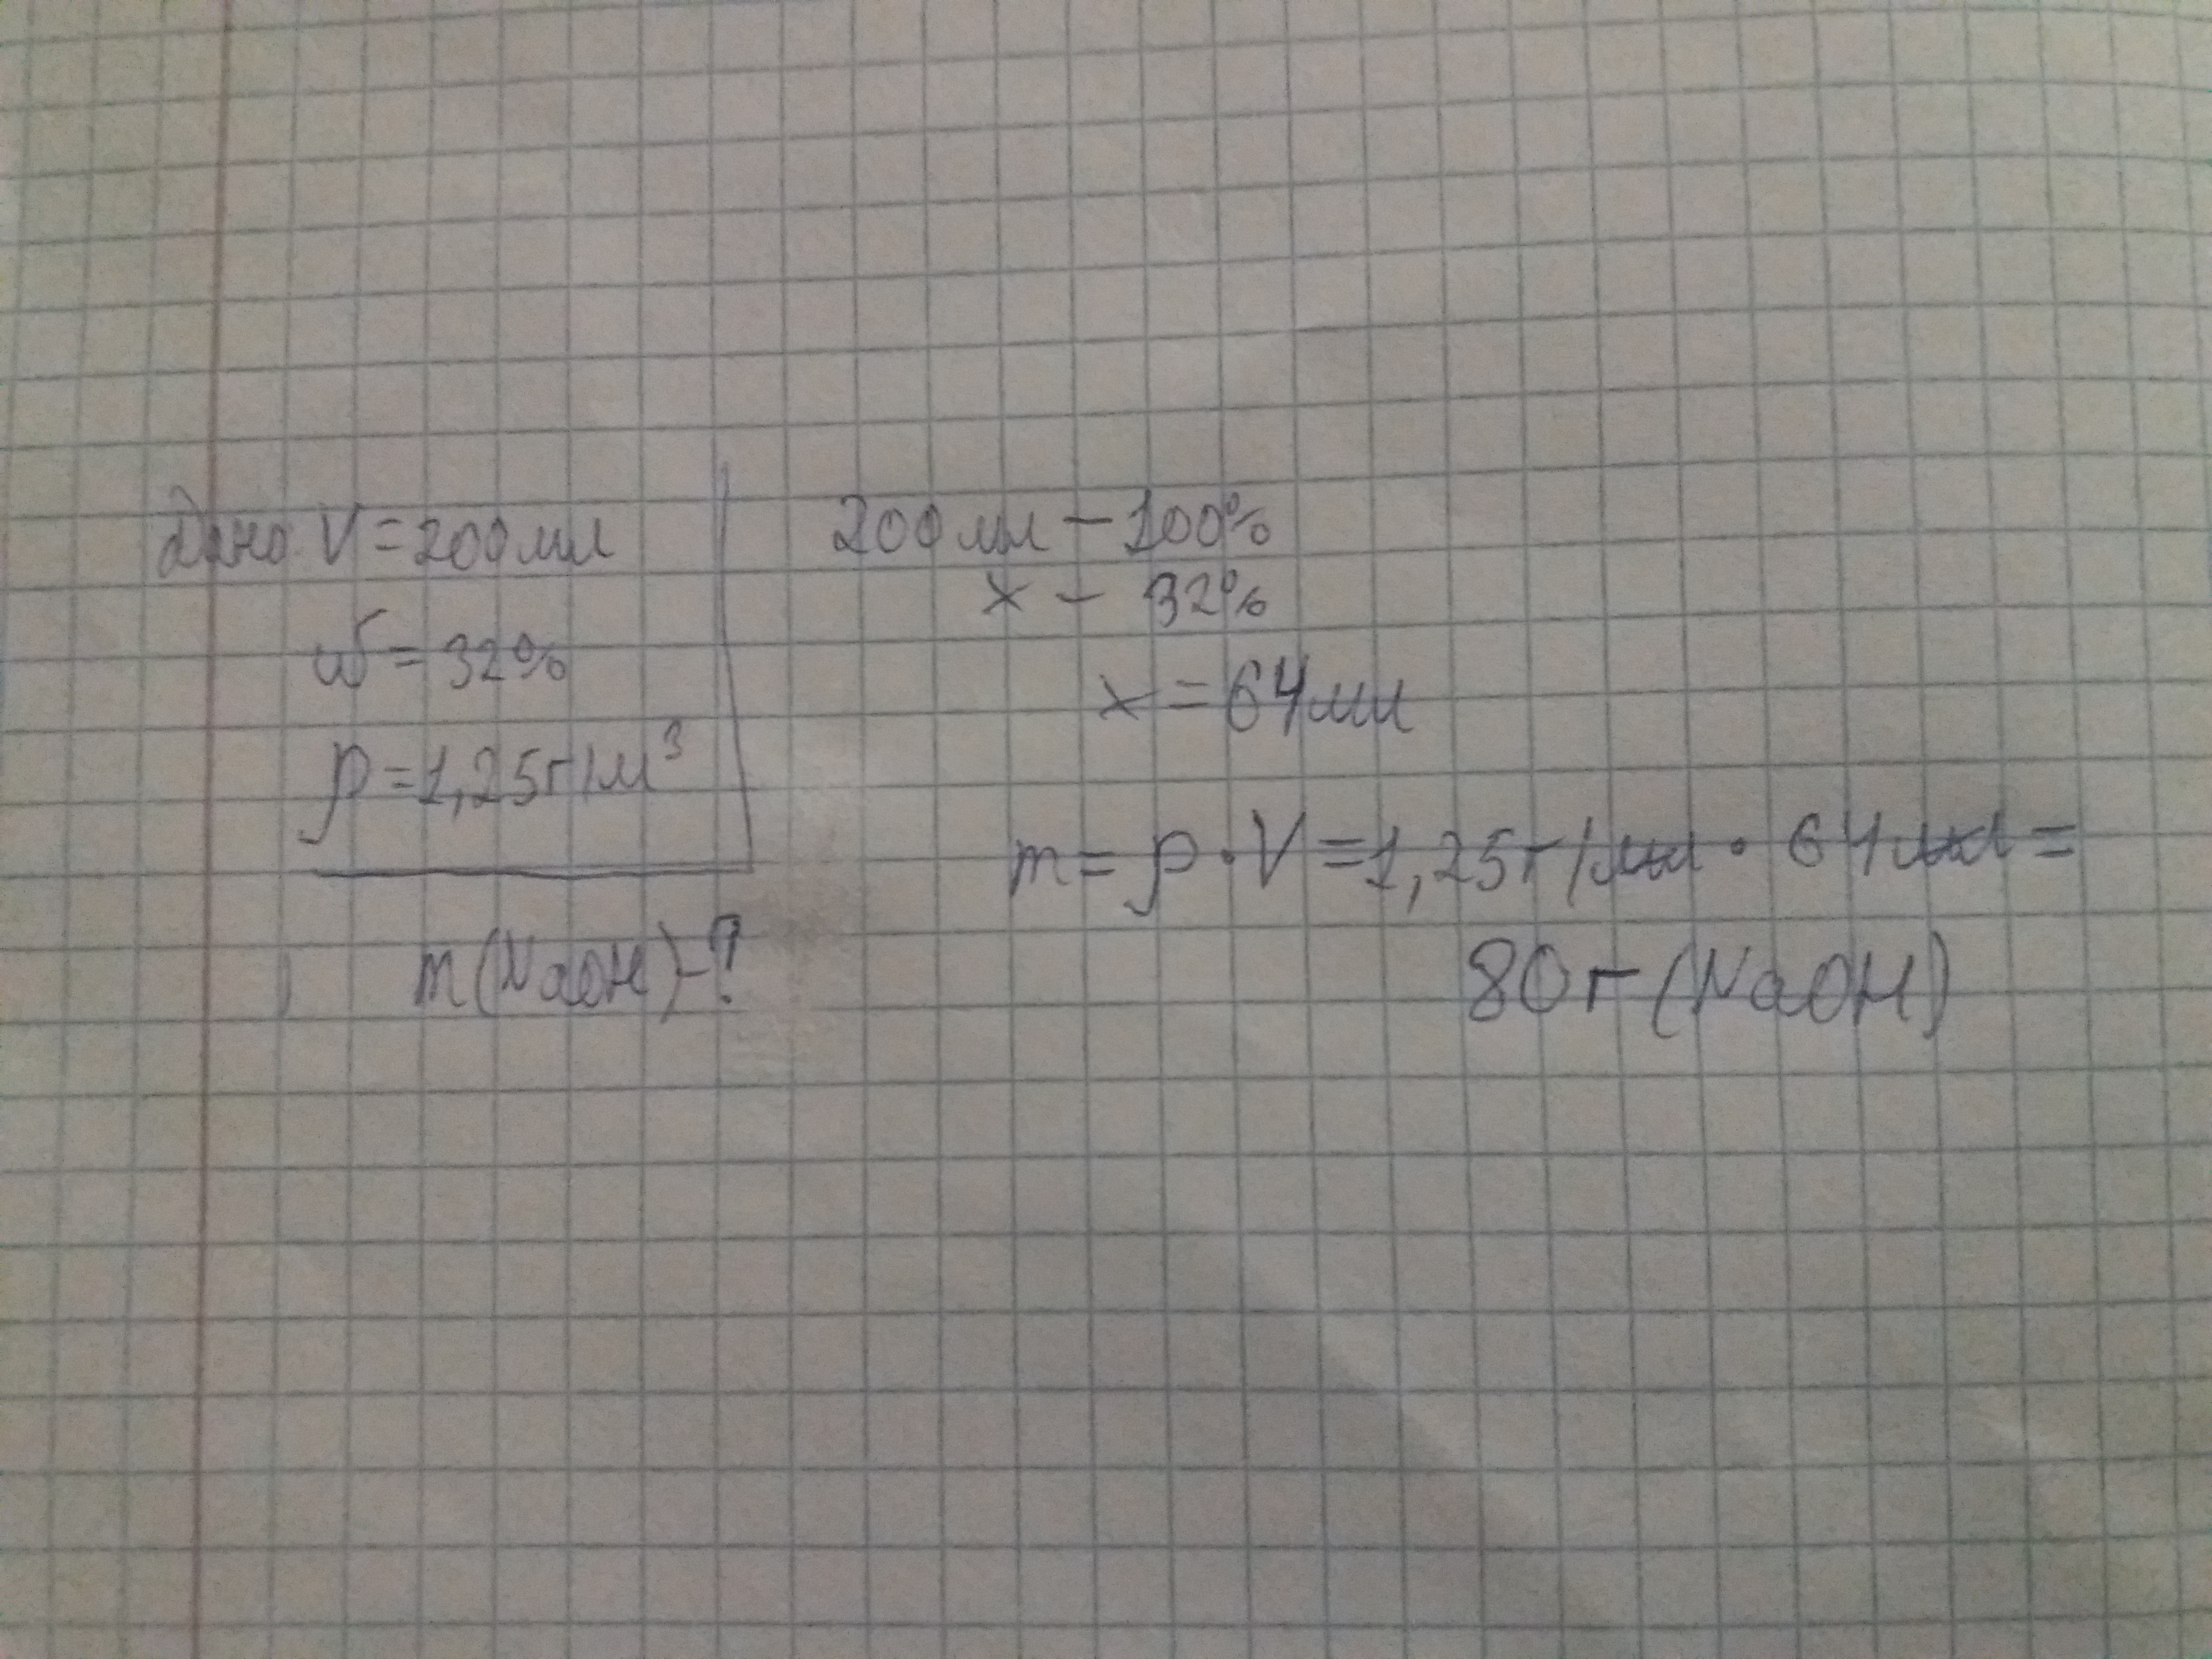 Дано V=200мл
ω=32%
р=1,25г/м³
m(NaOH)-?
200мл – 100%
х – 32%
х = 64мл
m = р · V = 1,25г/мл · 64мл =
80г (NaOH)